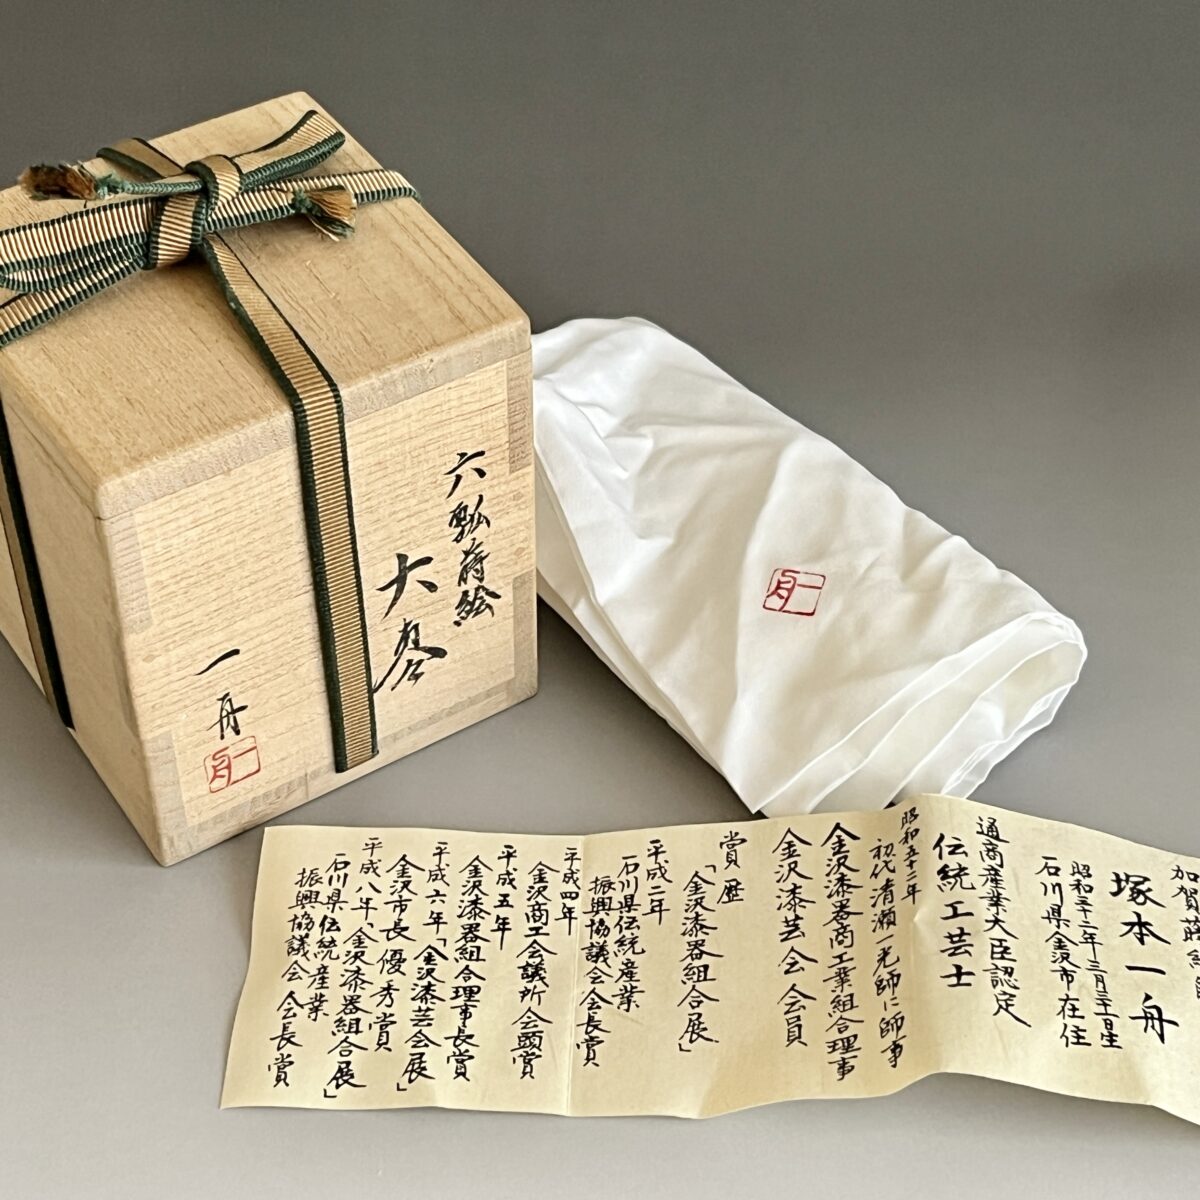 六瓢蒔絵
大棗
一舟
一舟
一舟
加賀蒔絵
塚本一舟
昭和三十二年三月三十一日生
石川県金沢市在住
通商産業大臣認定
伝統工芸士
昭和五十二年
初代清瀬一光師に師事
金沢漆器商工業組合理事
金沢漆芸会会員
賞歴
「金沢漆器組合展」
平成二年
石川県伝統産業
振興協議会会長賞
平成四年
金沢商工会議所会頭賞
平成五年
金沢漆器組合理事長賞
平成六年「金沢漆芸会展」
金沢市長優秀賞
平成八年「金沢漆器組合展」
石川県伝統産業
振興協議会会長賞